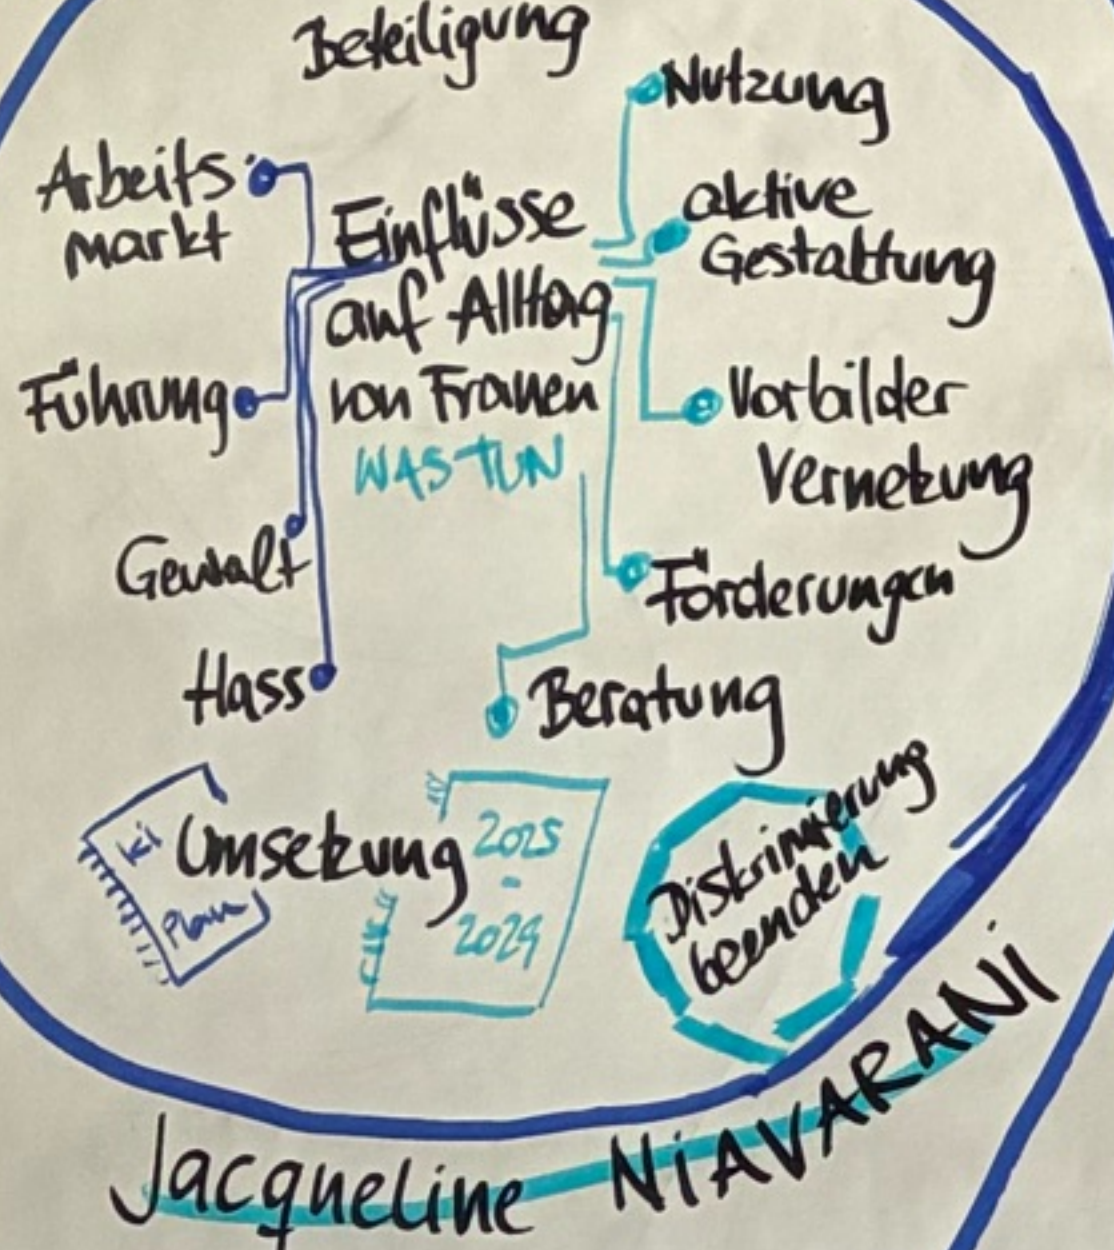 Beteiligung
Nutzung
Arbeits
markt
aktive
Gestaltung
Einflüsse
auf Alltag
von Frauen
WAS TUN
Führung
Vorbilder
Vernetzung
Gewalt
Förderungen
Hass
Beratung
KI
Plan
Umsetzung
2025
-
2029
Diskriminierung
beenden
Jacqueline NIAVARANI